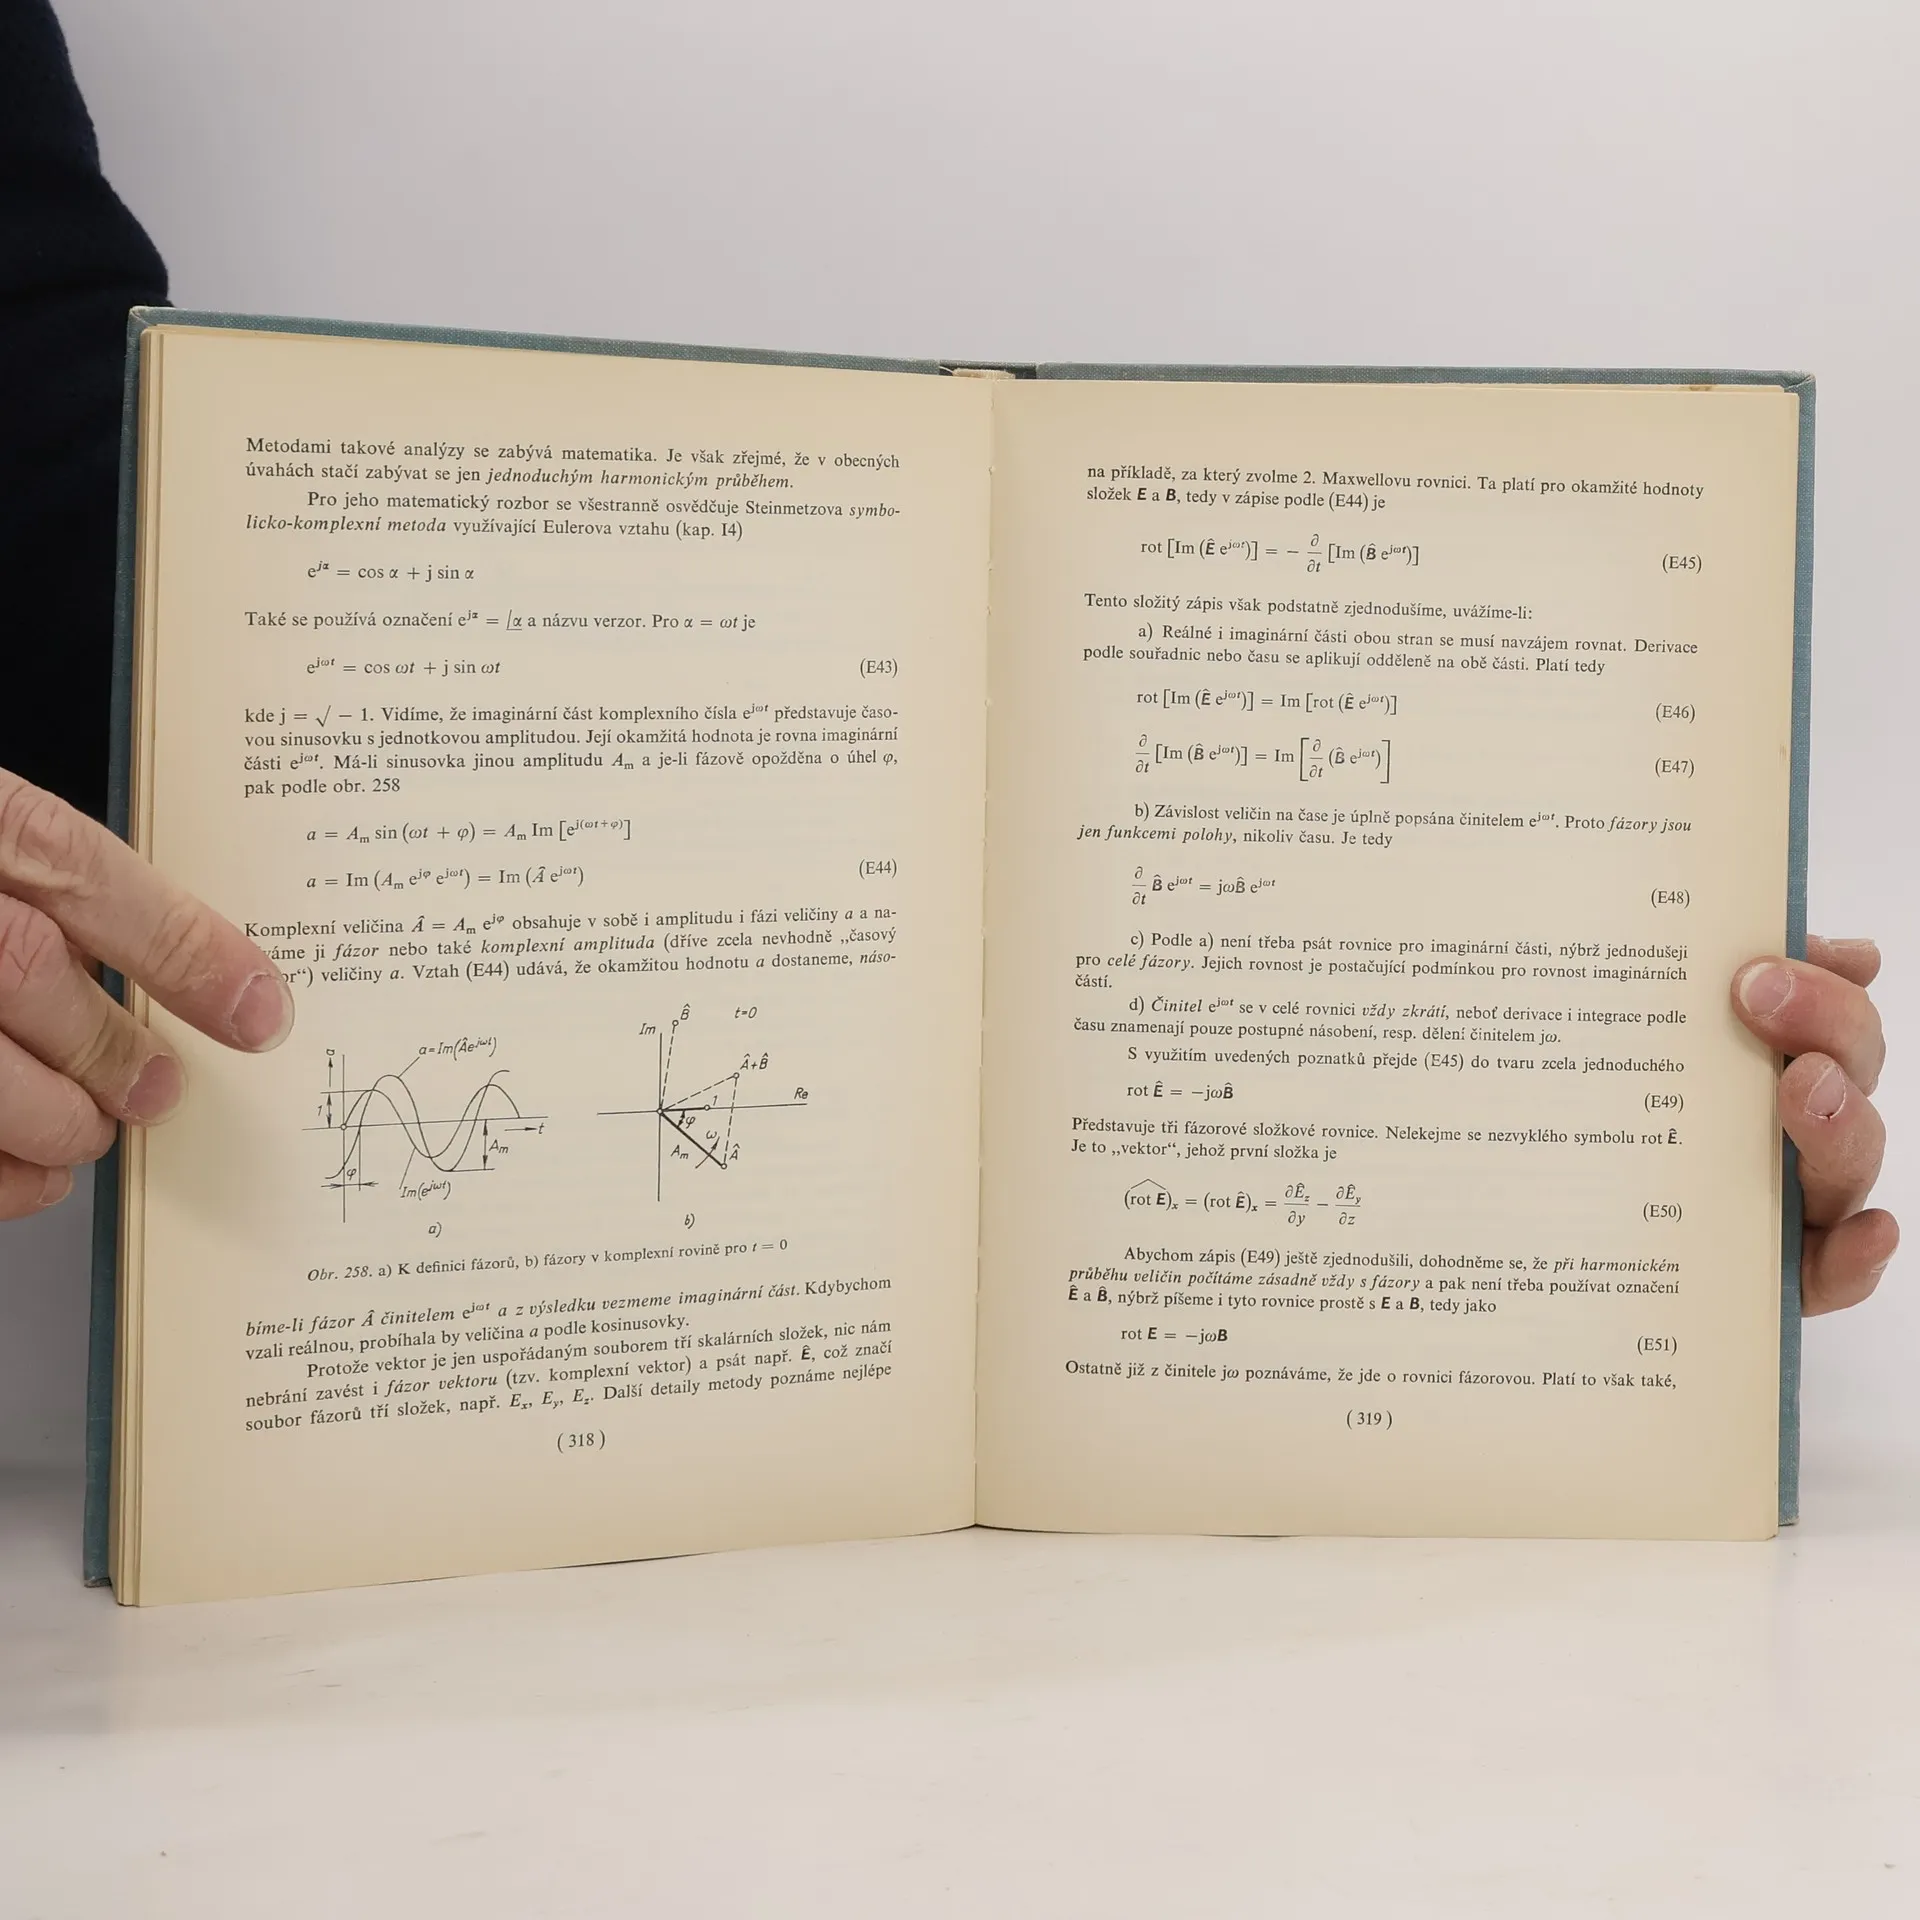 Metodami takové analýzy se zabývá matematika. Je však zřejmé, že v obecných
úvahách stačí zabývat se jen jednoduchým harmonickým průběhem.
Pro jeho matematický rozbor se všestranně osvědčuje Steinmetzova symbo-
licko-komplexní metoda využívající Eulerova vztahu (kap. I4)
e^{jα} = cos α + j sin α
Také se používá označení e^{jα} = /α a názvu verzor. Pro α = ωt je
e^{jωt} = cos ωt + j sin ωt (E43)
kde j = √ − 1. Vidíme, že imaginární část komplexního čísla e^{jωt} představuje časo-
vou sinusovku s jednotkovou amplitudou. Její okamžitá hodnota je rovna imaginární
části e^{jωt}. Má-li sinusovka jinou amplitudu A_m a je-li fázově opožděna o úhel φ,
pak podle obr. 258
a = A_m sin (ωt + φ) = A_m Im [e^{j(ωt+φ)}]
a = Im (A_m e^{jφ} e^{jωt}) = Im (Â e^{jωt}) (E44)
Komplexní veličina Â = A_m e^{jφ} obsahuje v sobě i amplitudu i fázi veličiny a a na-
váme ji fázor nebo také komplexní amplituda (dříve zcela nevhodně „časový
or“) veličiny a. Vztah (E44) udává, že okamžitou hodnotu a dostaneme, náso-
a
a=Im(Âe^{jωt})
1
t
A_m
φ
Im(e^{jωt})
a)
Im
B̂
t=0
Â+B̂
Re
1
φ
ω
A_m
Â
b)
Obr. 258. a) K definici fázorů, b) fázory v komplexní rovině pro t = 0
bíme-li fázor Â činitelem e^{jωt} a z výsledku vezmeme imaginární část. Kdybychom
vzali reálnou, probíhala by veličina a podle kosinusovky.
Protože vektor je jen uspořádaným souborem tří skalárních složek, nic nám
nebrání zavést i fázor vektoru (tzv. komplexní vektor) a psát např. Ê, což značí
soubor fázorů tří složek, např. E_x, E_y, E_z. Další detaily metody poznáme nejlépe
( 318 )
na příkladě, za který zvolme 2. Maxwellovu rovnici. Ta platí pro okamžité hodnoty
složek E a B, tedy v zápise podle (E44) je
rot [Im (Ê e^{jωt})] = − ∂/∂t [Im (B̂ e^{jωt})] (E45)
Tento složitý zápis však podstatně zjednodušíme, uvážíme-li:
a) Reálné i imaginární části obou stran se musí navzájem rovnat. Derivace
podle souřadnic nebo času se aplikují odděleně na obě části. Platí tedy
rot [Im (Ê e^{jωt})] = Im [rot (Ê e^{jωt})] (E46)
∂/∂t [Im (B̂ e^{jωt})] = Im [∂/∂t (B̂ e^{jωt})] (E47)
b) Závislost veličin na čase je úplně popsána činitelem e^{jωt}. Proto fázory jsou
jen funkcemi polohy, nikoliv času. Je tedy
∂/∂t B̂ e^{jωt} = jωB̂ e^{jωt} (E48)
c) Podle a) není třeba psát rovnice pro imaginární části, nýbrž jednodušeji
pro celé fázory. Jejich rovnost je postačující podmínkou pro rovnost imaginárních
částí.
d) Činitel e^{jωt} se v celé rovnici vždy zkrátí, neboť derivace i integrace podle
času znamenají pouze postupné násobení, resp. dělení činitelem jω.
S využitím uvedených poznatků přejde (E45) do tvaru zcela jednoduchého
rot Ê = −jωB̂ (E49)
Představuje tři fázorové složkové rovnice. Nelekejme se nezvyklého symbolu rot Ê.
Je to „vektor“, jehož první složka je
(rot E)_x = (rot Ê)_x = ∂Ê_z/∂y − ∂Ê_y/∂z (E50)
Abychom zápis (E49) ještě zjednodušili, dohodněme se, že při harmonickém
průběhu veličin počítáme zásadně vždy s fázory a pak není třeba používat označení
Ê a B̂, nýbrž píšeme i tyto rovnice prostě s E a B, tedy jako
rot E = −jωB (E51)
Ostatně již z činitele jω poznáváme, že jde o rovnici fázorovou. Platí to však také,
( 319 )